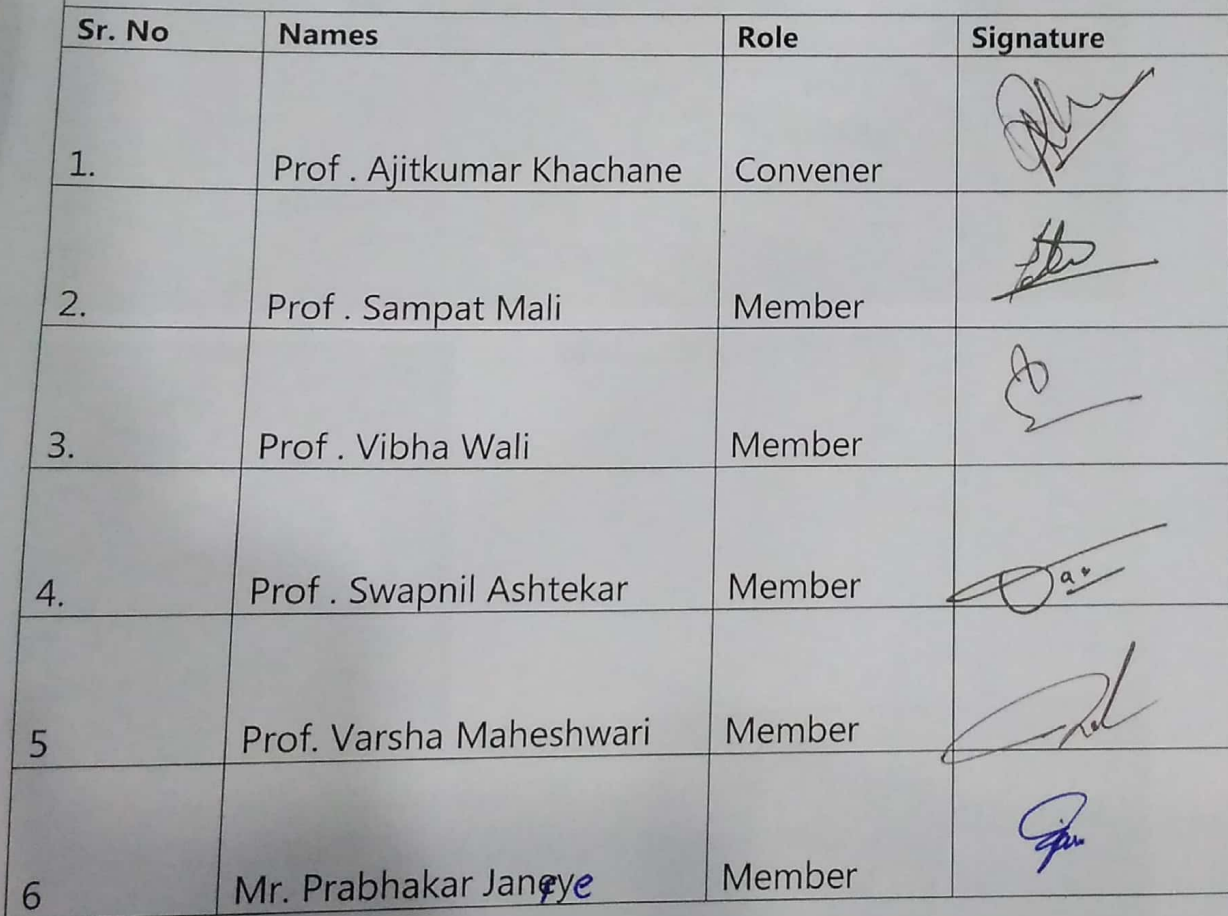 Sr. No Names Role Signature
1. Prof . Ajitkumar Khachane Convener
2. Prof . Sampat Mali Member
3. Prof . Vibha Wali Member
4. Prof . Swapnil Ashtekar Member
5 Prof. Varsha Maheshwari Member
6 Mr. Prabhakar Member